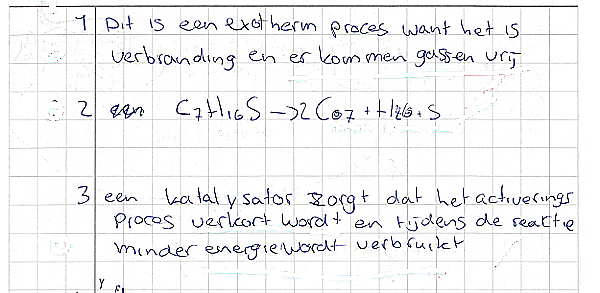 1 Dit is een exotherm proces want het is
verbranding en er kommen gassen vrij
2 C7H16S → 2 CO7 + H16 + S
3 een katalysator zorgt dat het activerings
proces verkort wordt en tijdens de reactie
minder energie wordt verbruikt